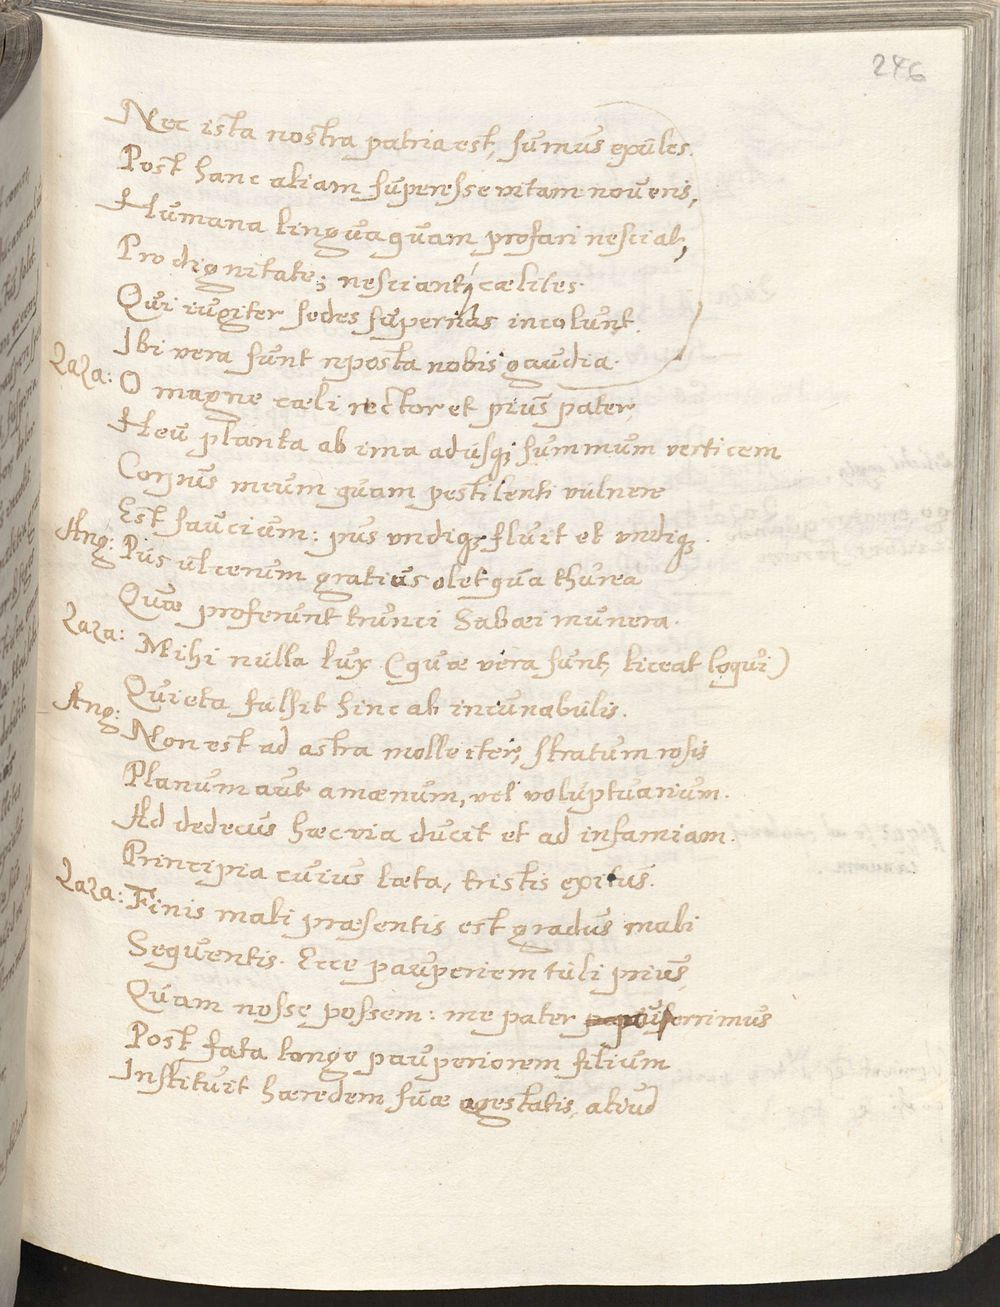 246
Nec ista nostra patria est, sumus exules.
Post hanc aliam superesse vitam noveris,
Humana lingua quam profari nesciat,
Pro dignitate; nesciant, cælites
Qui iugiter sedes supernas incolunt.
Ibi vera sunt reposta nobis gaudia.
Laza: O magne cæli rector et pius pater,
Heu planta ab ima adusq; summum verticem
Corpus meum quam pestilenti vulnere
Est saucium: pus undiq; fluit et undiq;.
Ang: Pus ulcerum gratius olet qua thura
Quæ proferunt trunci Sabæi munera.
Laza: Mihi nulla lux (quæ vera sunt, liceat loqui)
Quieta fulsit hinc ab incunabulis.
Ang: Non est ad astra molle iter, stratum rosis
Planum aut amænum, vel voluptuarium.
Ad dedecus hæc via ducit et ad infamiam.
Principia cuius læta, tristis exitus.
Laza: Finis mali præsentis est gradus mali
Sequentis. Ecce pauperiem tuli prius,
Quam nosse possem: me pater pauperrimus
Post fata longe pauperiorem filium
Instituit hæredem suæ egestatis, aliud